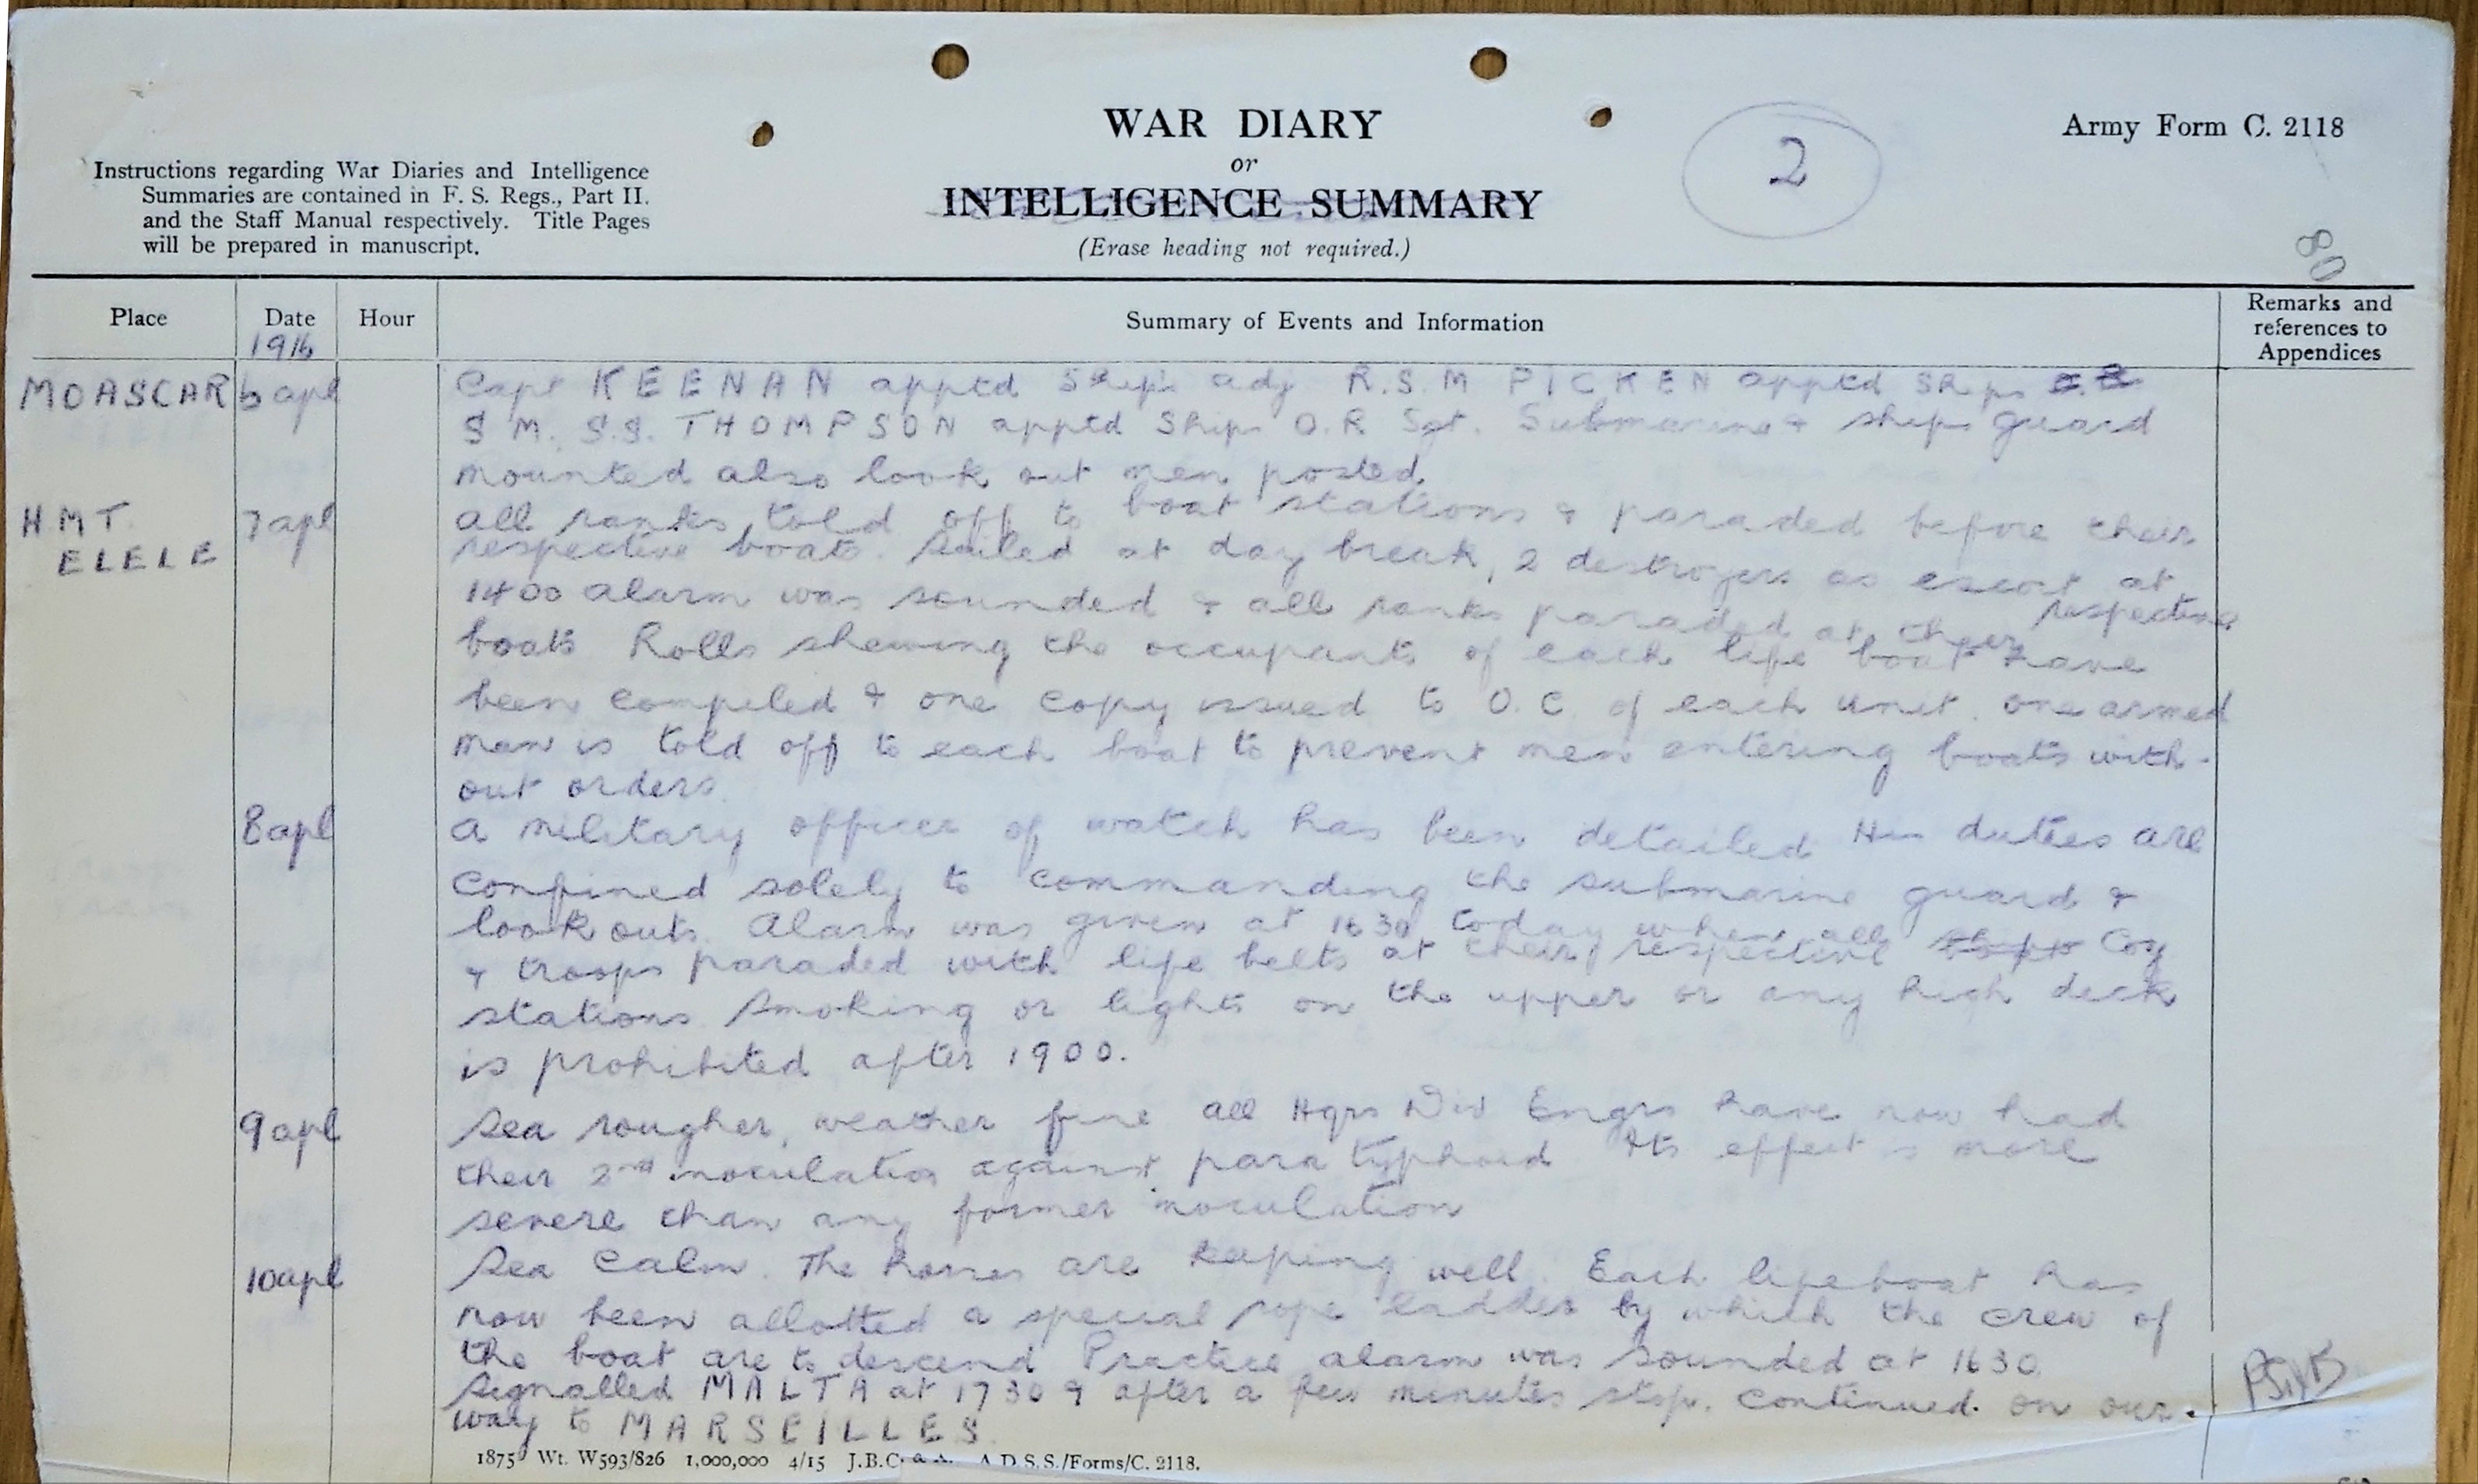 WAR DIARY
or
INTELLIGENCE SUMMARY
(Erase heading not required.)
2
Army Form C. 2118
Instructions regarding War Diaries and Intelligence
Summaries are contained in F. S. Regs., Part II.
and the Staff Manual respectively. Title Pages
will be prepared in manuscript.
80
Place Date Hour Summary of Events and Information Remarks and
references to
Appendices
1916
MOASCAR 6 apl Capt KEENAN apptd Ships adj R.S.M PICKEN apptd Ships
S M. S.S. THOMPSON apptd Ships O.R Sgt. Submarine & ships guard
mounted also look out men posted
H.M.T. 7 apl all ranks told off to boat stations & paraded before their
ELELE respective boats. Sailed at day break, 2 destroyers as escort at
1400 alarm was sounded & all ranks paraded at their respective
boats Rolls shewing the occupants of each life boat have
been compiled & one copy issued to O.C. of each unit. one armed
man is told off to each boat to prevent men entering boats with-
out orders.
8 apl a military officer of watch has been detailed His duties are
confined solely to commanding the submarine guard &
look outs. Alarm was given at 1630 today when all
& troops paraded with life belts at their respective Coy
stations. Smoking or lights on the upper or any high deck
is prohibited after 1900.
9 apl Sea rougher, weather fine all Hqrs Div Engrs have now had
their 2nd inoculation against para typhoid Its effect is more
severe than any former inoculation
10 apl Sea calm. The horses are keeping well. Each lifeboat has
now been allotted a special rope ladder by which the crew of
the boat are to descend Practice alarm was sounded at 1630
Signalled MALTA at 1730 & after a few minutes stop. continued on our
way to MARSEILLES
1875 Wt. W593/826 1,000,000 4/15 J.B.C. & A. A.D.S.S./Forms/C. 2118.